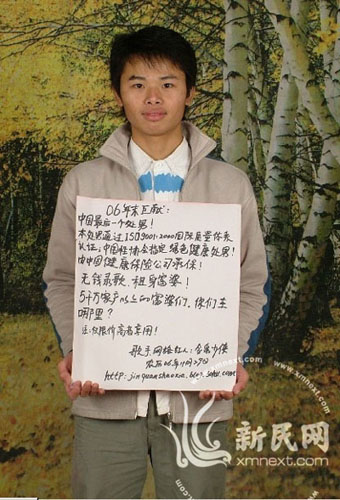 06年末巨献:
中国最后一个处男!
本处男通过ISO9001:2000国际质量体系
认证,中国性协会指定绿色健康处男!
由中国健康保险公司承保!
无钱录歌,租身富婆!
5千万家产以上的富婆们,你们在
哪里?
注:仅限价高者享用!
歌手.网络红人:金泉少侠
农历06年11月7日
http://jinquanshaoxia.blog.sohu.com
xmnext.com
新民网
xmnext.com